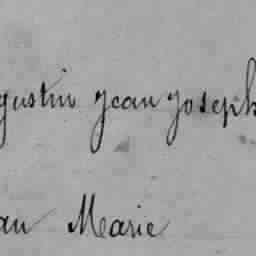 gustin Jean Joseph
an Marie